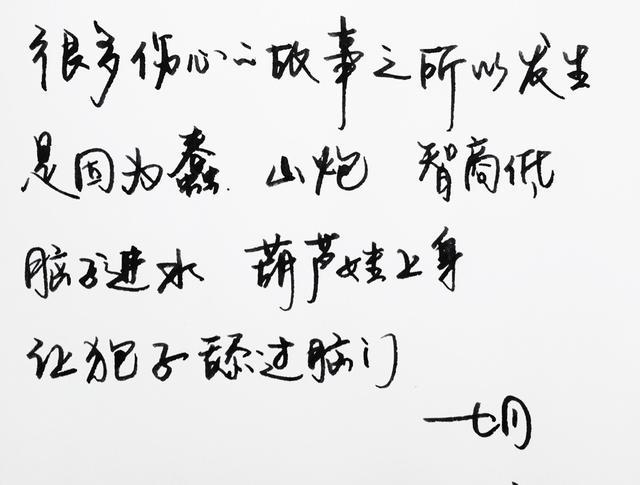 很多伤心的故事之所以发生
是因为蠢 山炮 智商低
脑子进水 葫芦娃上身
让狍子舔过脑门
一七月